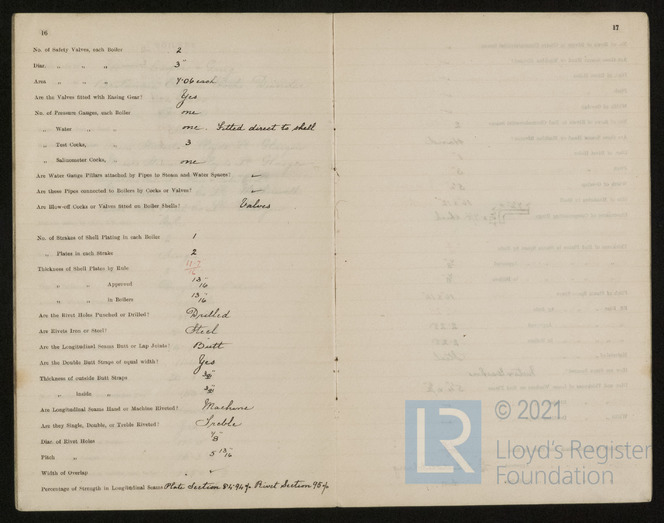 16
No. of Safety Valves, each Boiler 2
Diar. „ „ „ 3"
Area „ „ „ 7.06 each
Are the Valves fitted with Easing Gear? Yes
No. of Pressure Gauges, each Boiler one
„ Water „ „ one. Fitted direct to shell
„ Test Cocks, „ 3
„ Salinometer Cocks, „ one
Are Water Gauge Pillars attached by Pipes to Steam and Water Spaces? ✓
Are these Pipes connected to Boilers by Cocks or Valves? ✓
Are Blow-off Cocks or Valves fitted on Boiler Shells? Valves
No. of Strakes of Shell Plating in each Boiler 1
„ Plates in each Strake 2
Thickness of Shell Plates by Rule
„ „ Approved 13/16"
„ „ in Boilers 13/16"
Are the Rivet Holes Punched or Drilled? Drilled
Are Rivets Iron or Steel? Steel
Are the Longitudinal Seams Butt or Lap Joints? Butt
Are the Double Butt Straps of equal width? Yes
Thickness of outside Butt Straps
„ Inside „
Are Longitudinal Seams Hand or Machine Riveted? Machine
Are they Single, Double, or Treble Riveted? Treble
Diar. of Rivet Holes
Pitch „ 5 13/16"
Width of Overlap ✓
Percentage of Strength in Longitudinal Seams Plate Section 84.94% Rivet Section 95%
17
© 2021
LR
Lloyd's Register
Foundation